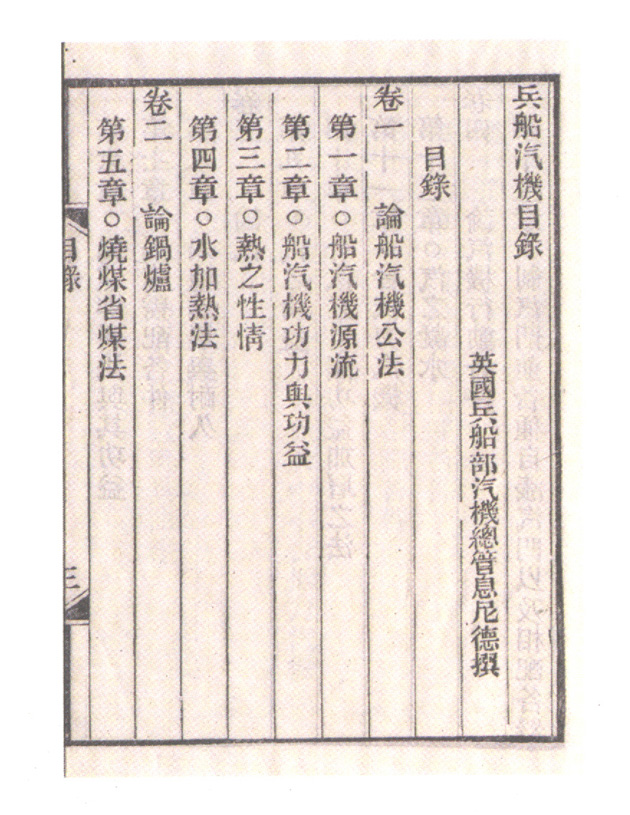 兵船汽機目錄
英國兵船部汽機總管息尼德撰
目錄
卷一　論船汽機公法
第一章○船汽機源流
第二章○船汽機功力與功益
第三章○熱之性情
第四章○水加熱法
卷二　論鍋爐
第五章○燒煤省煤法
目錄